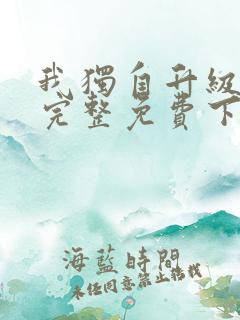 我獨自升級
完整免費下
海藍時間
未经同意禁止转载